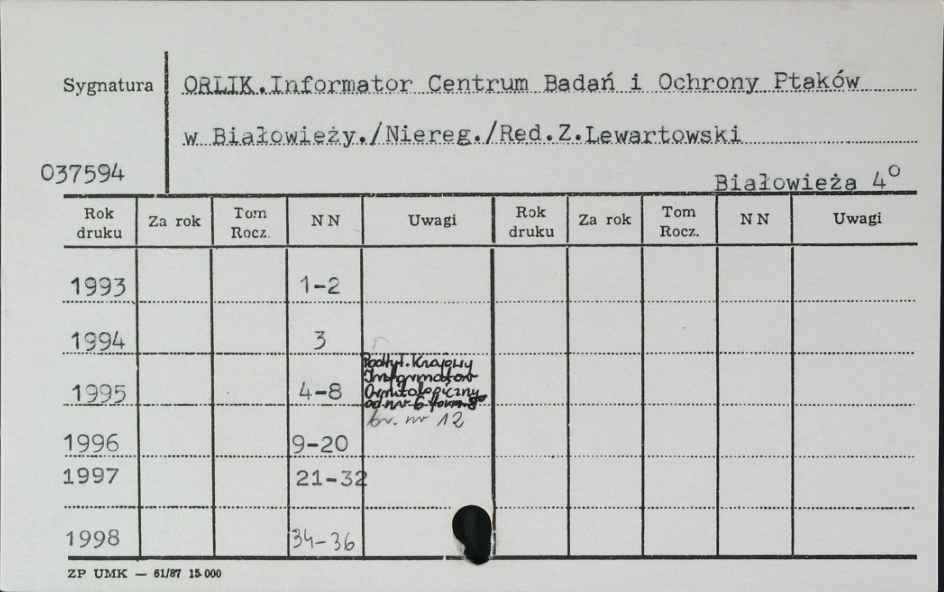 Sygnatura
ORLIK.Informator Centrum Badań i Ochrony Ptaków
w Białowieży./Niereg./Red.Z.Lewartowski
037594
Białowieża 4°
Rok druku Za rok Tom Rocz. NN Uwagi Rok druku Za rok Tom Rocz. NN Uwagi
1993 1-2
1994 3
1995 4-8 Podtyt. Krajowy
Informator
Ornitologiczny
od nr 6 form. 8°
br. nr 12
1996 9-20
1997 21-32
1998 34-36
ZP UMK — 61/87 15.000